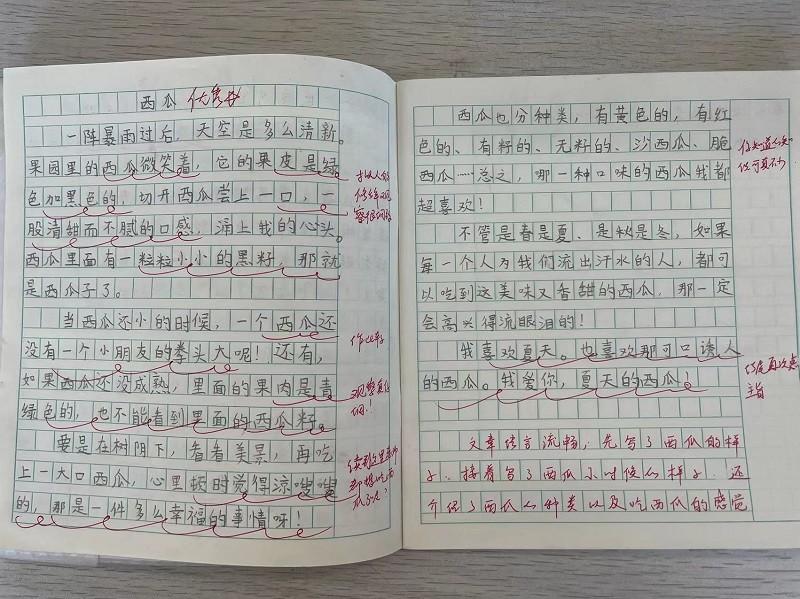 西瓜 优秀
一阵暴雨过后，天空是多么清新。
果园里的西瓜微笑着，它的果皮是绿
色加黑色的，切开西瓜尝上一口，一
股清甜而不腻的口感，涌上我的心头。
西瓜里面有一粒粒小小的黑籽，那就
是西瓜子了。
当西瓜还小的时候，一个西瓜还
没有一个小朋友的拳头大呢！还有，
如果西瓜还没成熟，里面的果肉是青
绿色的，也不能看到里面的西瓜籽。
要是在树阴下，看看美景，再吃
上一大口西瓜，心里顿时觉得凉嗖嗖
的，那是一件多么幸福的事情呀！
作比较
观察真仔
细！
西瓜也分种类，有黄色的，有红
色的、有籽的、无籽的、沙西瓜、脆
西瓜……总之，哪一种口味的西瓜我都
超喜欢！
不管是春是夏、是秋是冬，如果
每一个人为我们流出汗水的人，都可
以吃到这美味又香甜的西瓜，那一定
会高兴得流眼泪的！
我喜欢夏天。也喜欢那可口诱人
的西瓜。我爱你，夏天的西瓜！
你知道的
还可真不少
结尾再次点
主旨
文章语言流畅，先写了西瓜的样
子，接着写了西瓜小时候的样子，还
介绍了西瓜的种类以及吃西瓜的感觉